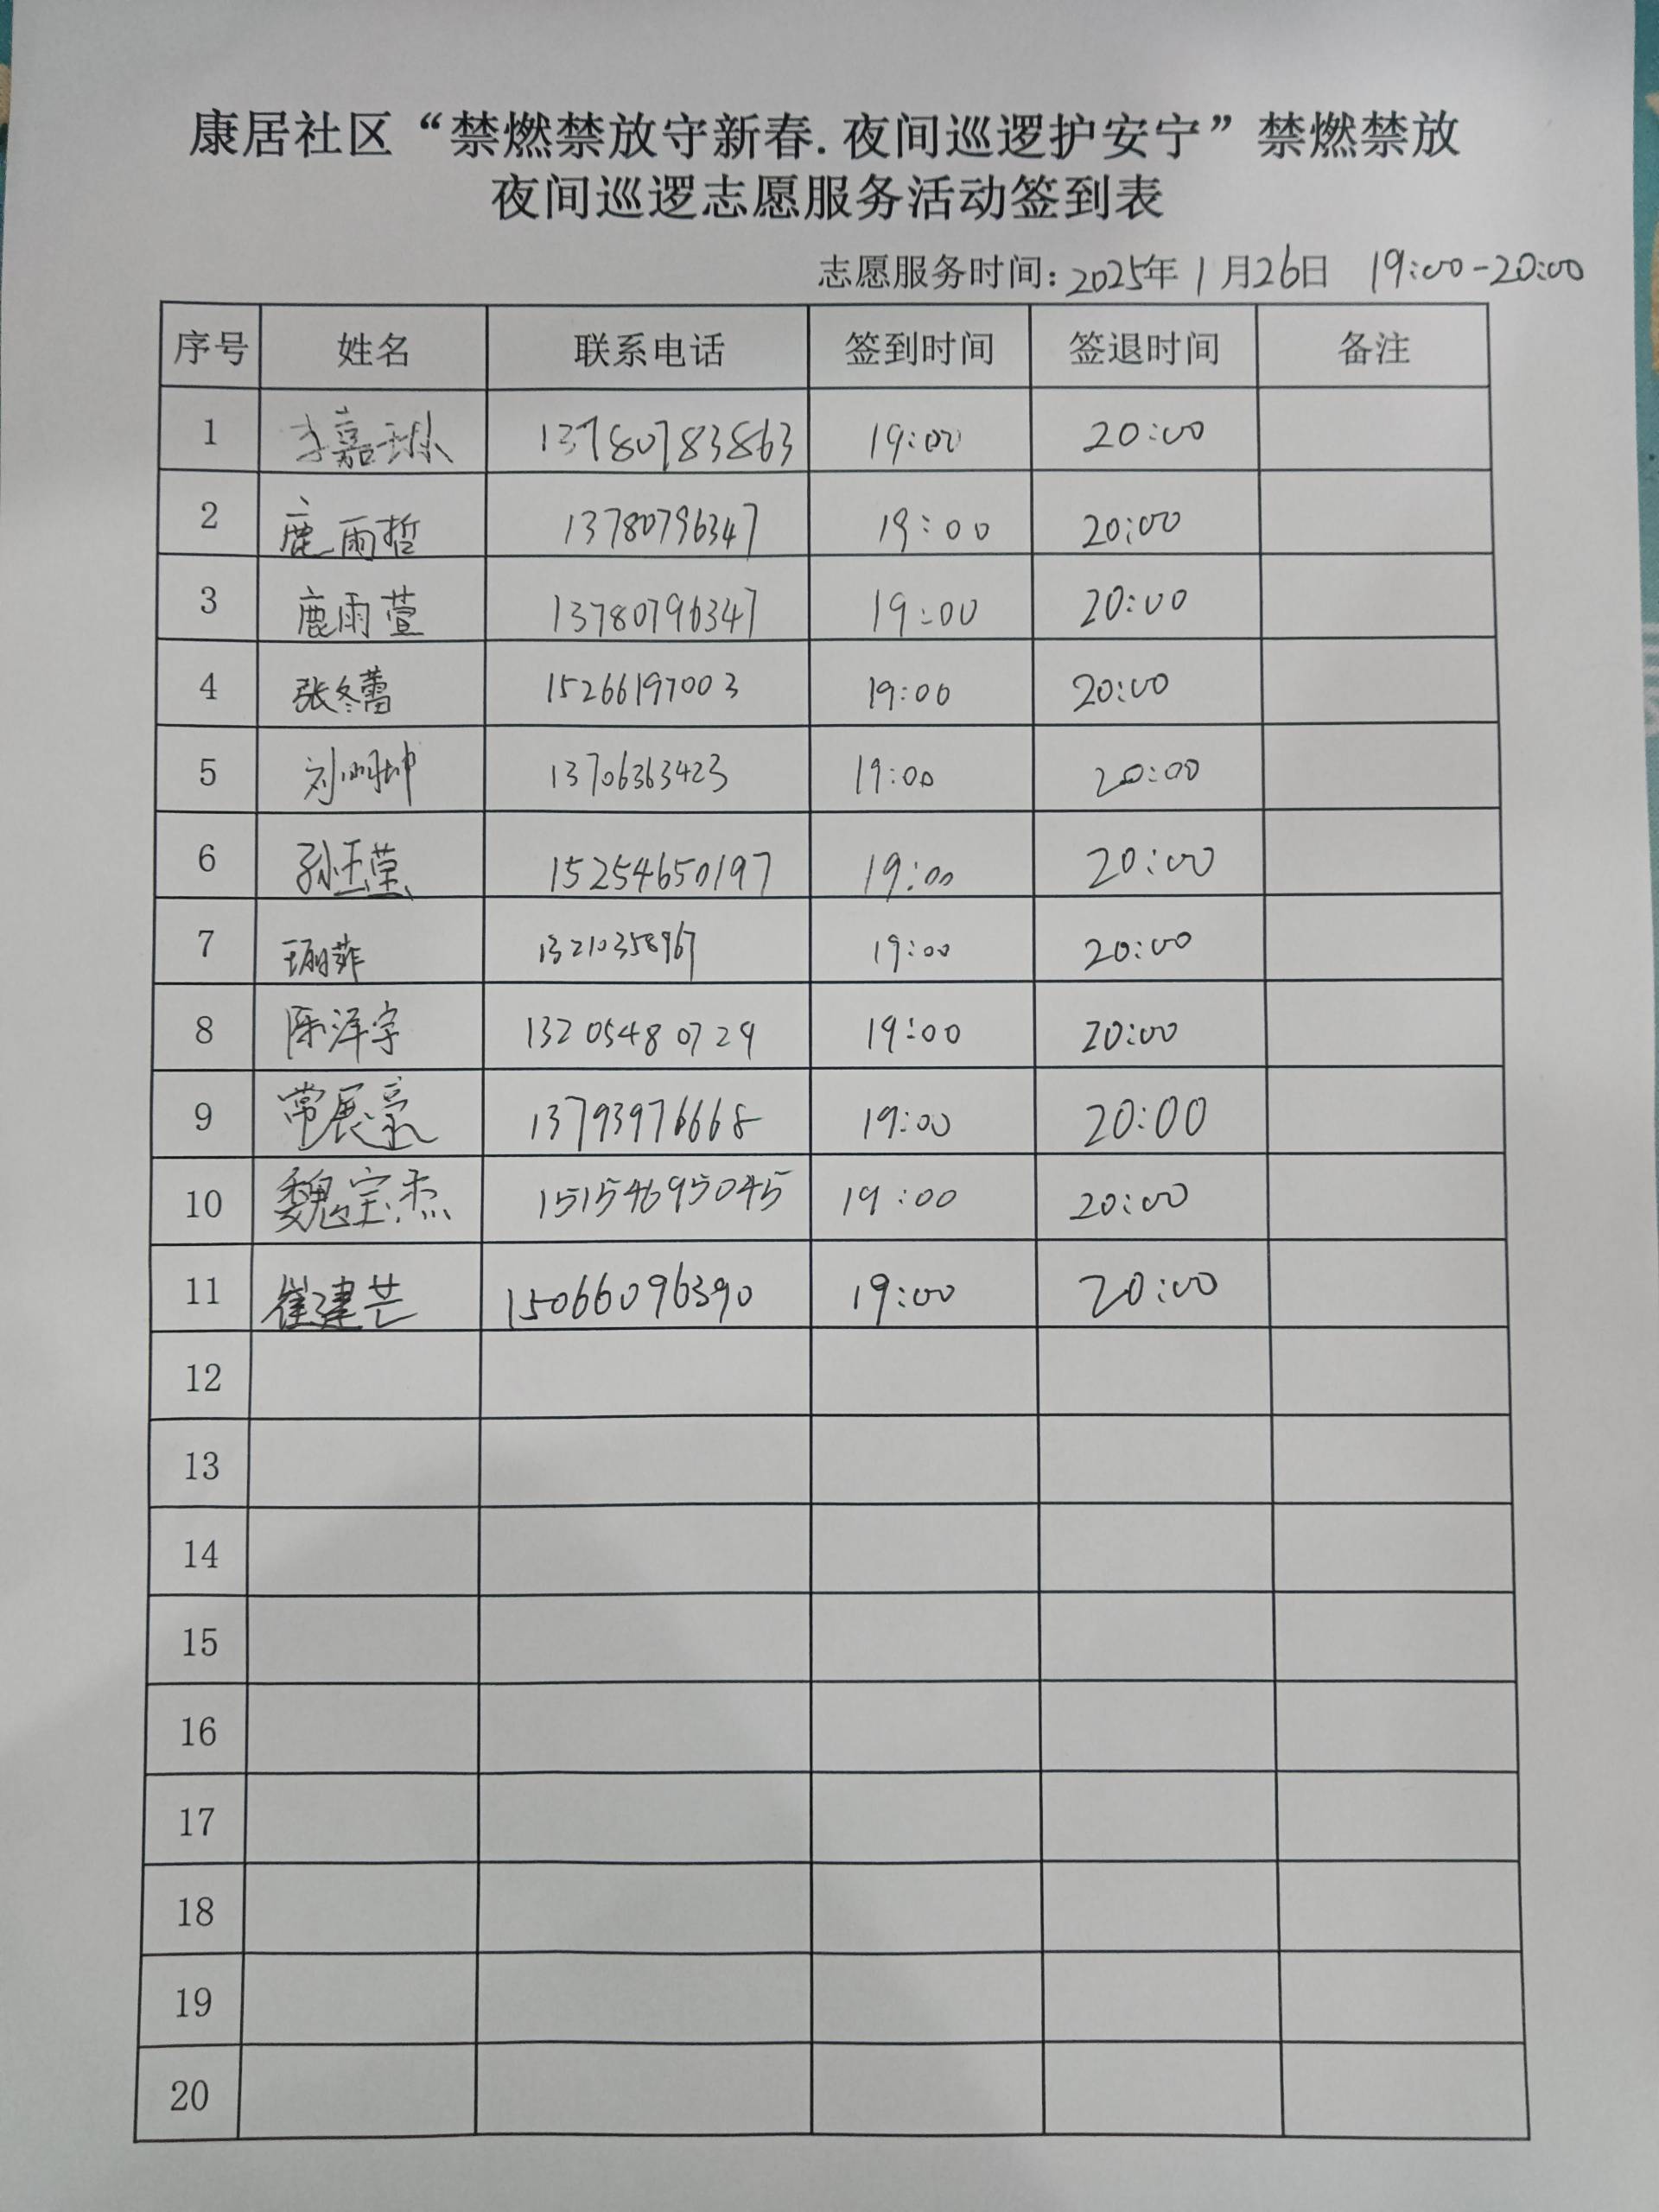 康居社区“禁燃禁放守新春.夜间巡逻护安宁”禁燃禁放
夜间巡逻志愿服务活动签到表
志愿服务时间：2025年1月26日 19:00-20:00
序号 姓名 联系电话 签到时间 签退时间 备注
1 李嘉琳 13780783863 19:00 20:00
2 鹿雨哲 13780796347 19:00 20:00
3 鹿雨萱 13780796347 19:00 20:00
4 张冬蕾 15266197003 19:00 20:00
5 刘明坤 13706363423 19:00 20:00
6 孙玉莹 15254650197 19:00 20:00
7 13210358967 19:00 20:00
8 陈泽宇 13205480729 19:00 20:00
9 常展豪 13793976668 19:00 20:00
10 魏宝杰 15154695045 19:00 20:00
11 崔建芒 15066096390 19:00 20:00
12
13
14
15
16
17
18
19
20